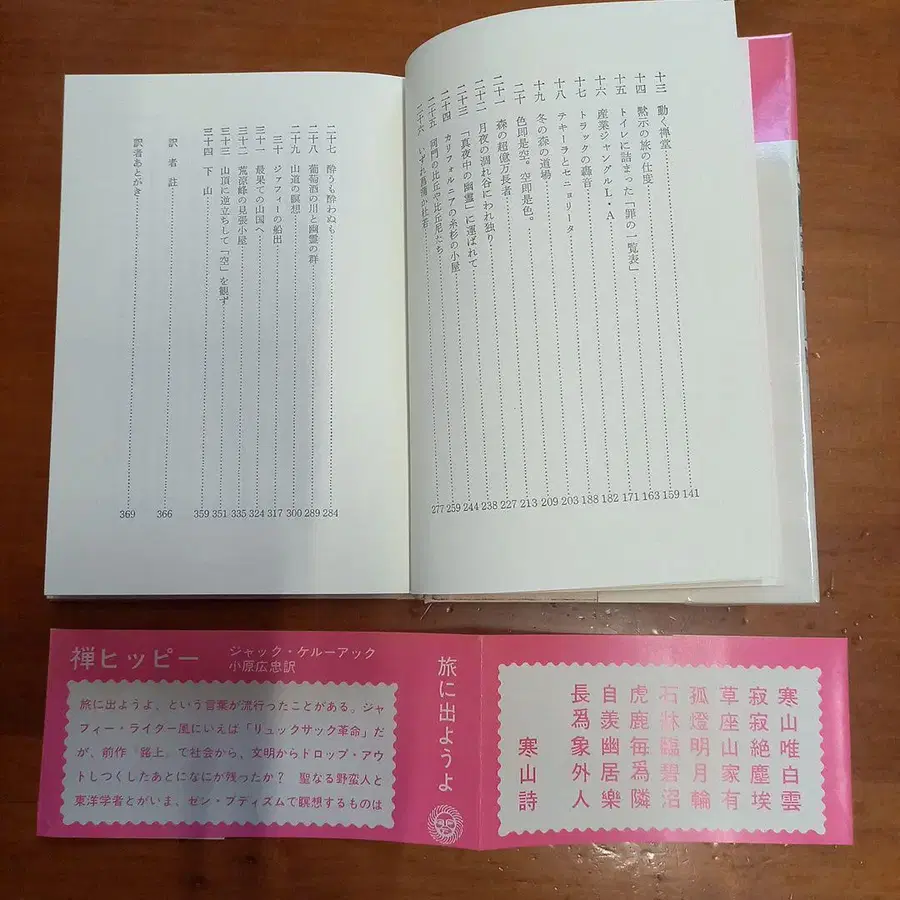 十三 動く禅堂 141
十四 黙示の旅の仕度 159
十五 トイレに詰まった「罪の一覧表」 163
十六 産業ジャングルL・A 171
十七 トラックの轟音 182
十八 テキーラとセニョリータ 188
十九 冬の森の道場 203
二十 色即是空。空即是色。 209
二十一 森の超億万長者 213
二十二 月夜の涸れ谷にわれ独り 227
二十三 「真夜中の幽霊」に運ばれて 238
二十四 カリフォルニアの糸杉の小屋 244
二十五 同門の比丘や比丘尼たち 259
二十六 いずれ菖蒲か杜若 277
二十七 酔うも酔わぬも 284
二十八 葡萄酒の川と幽霊の群 289
二十九 山道の瞑想 300
三十 ジァフィーの船出 317
三十一 最果ての山国へ 324
三十二 荒涼峰の見張小屋 335
三十三 山頂に逆立ちして「空」を観ず 351
三十四 下山 359
訳者註 366
訳者あとがき 369
禅ヒッピー
ジャック・ケルーアック
小原広忠訳
旅に出ようよ、という言葉が流行ったことがある。ジャ
フィー・ライダー風にいえば「リュックサック革命」だ
が、前作『路上』で社会から、文明からドロップ・アウ
トしつくしたあとになにが残ったか？ 聖なる野蛮人と
東洋学者とがいま、ゼン・ブディズムで瞑想するものは
旅に出ようよ
寒山唯白雲
寂寂絶塵埃
草座山家有
孤燈明月輪
石牀臨碧沼
虎鹿毎爲隣
自羨幽居樂
長爲象外人
寒山詩